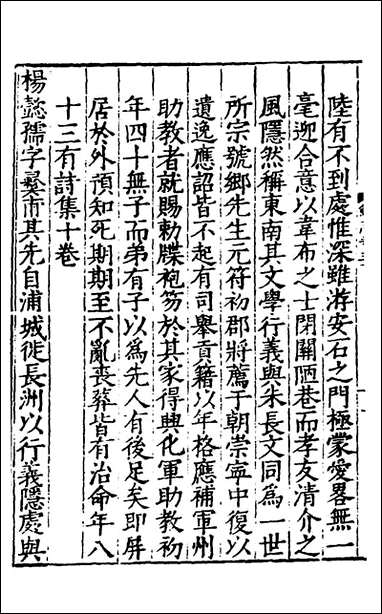 陸有不到處惟深雖游安石之門極蒙愛畧無一
毫迎合意以韋布之士閉關陋巷而孝友清介之
風隱然稱東南其文學行義與朱長文同為一世
所宗號鄉先生元符初郡將薦于朝崇寧中復以
遺逸應詔皆不起有司舉貢籍以年格應補軍州
助教者就賜勑牒袍笏於其家得興化軍助教初
年四十無子而弟有子以為先人有後足矣即屏
居於外預知死期期至不亂喪葬皆有治命年八
十三有詩集十卷
楊懿孺字彛甫其先自浦城徙長洲以行義隱處與